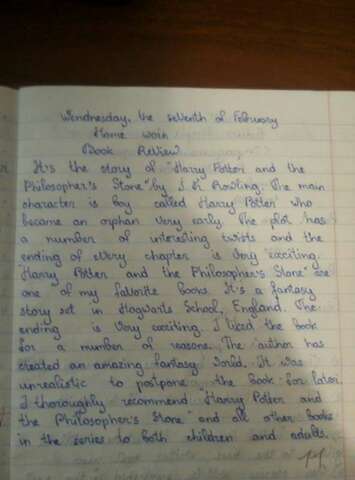 Wendnesday, the seventh of February
Home work
Book Review
It's the story of "Harry Potter and the
Philosopher's Stone", by J. K. Rowling. The main
character is boy called Harry Potter who
became an orphan very early. The plot has
a number of interesting twists and the
ending of every chapter is very exciting.
"Harry Potter and the Philosopher's Stone" are
one of my favorite books. It's a fantasy
story set in Hogwarts School, England. The
ending is very exciting. I liked the book
for a number of reasons. The author has
created an amazing fantasy world. It was
unrealistic to postpone the book for later.
I thoroughly recommend "Harry Potter and
the Philosopher's Stone" and all other books
in the series to both children and adults.